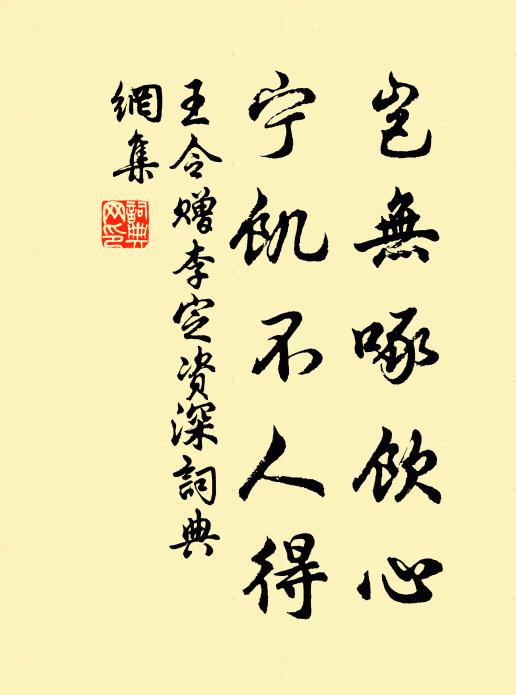 岂無啄飲心
宁飢不人得
王令赠李定资深詞典
網集
詞典
网印